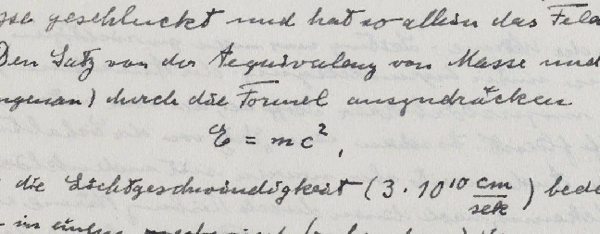 geschluckt und hat so allein das Feld
Den Satz von der Aequivalenz von Masse und
ungenau) durch die Formel auszudrücken
E = mc²,
die Lichtgeschwindigkeit (3 · 10¹⁰ cm/sek) bede